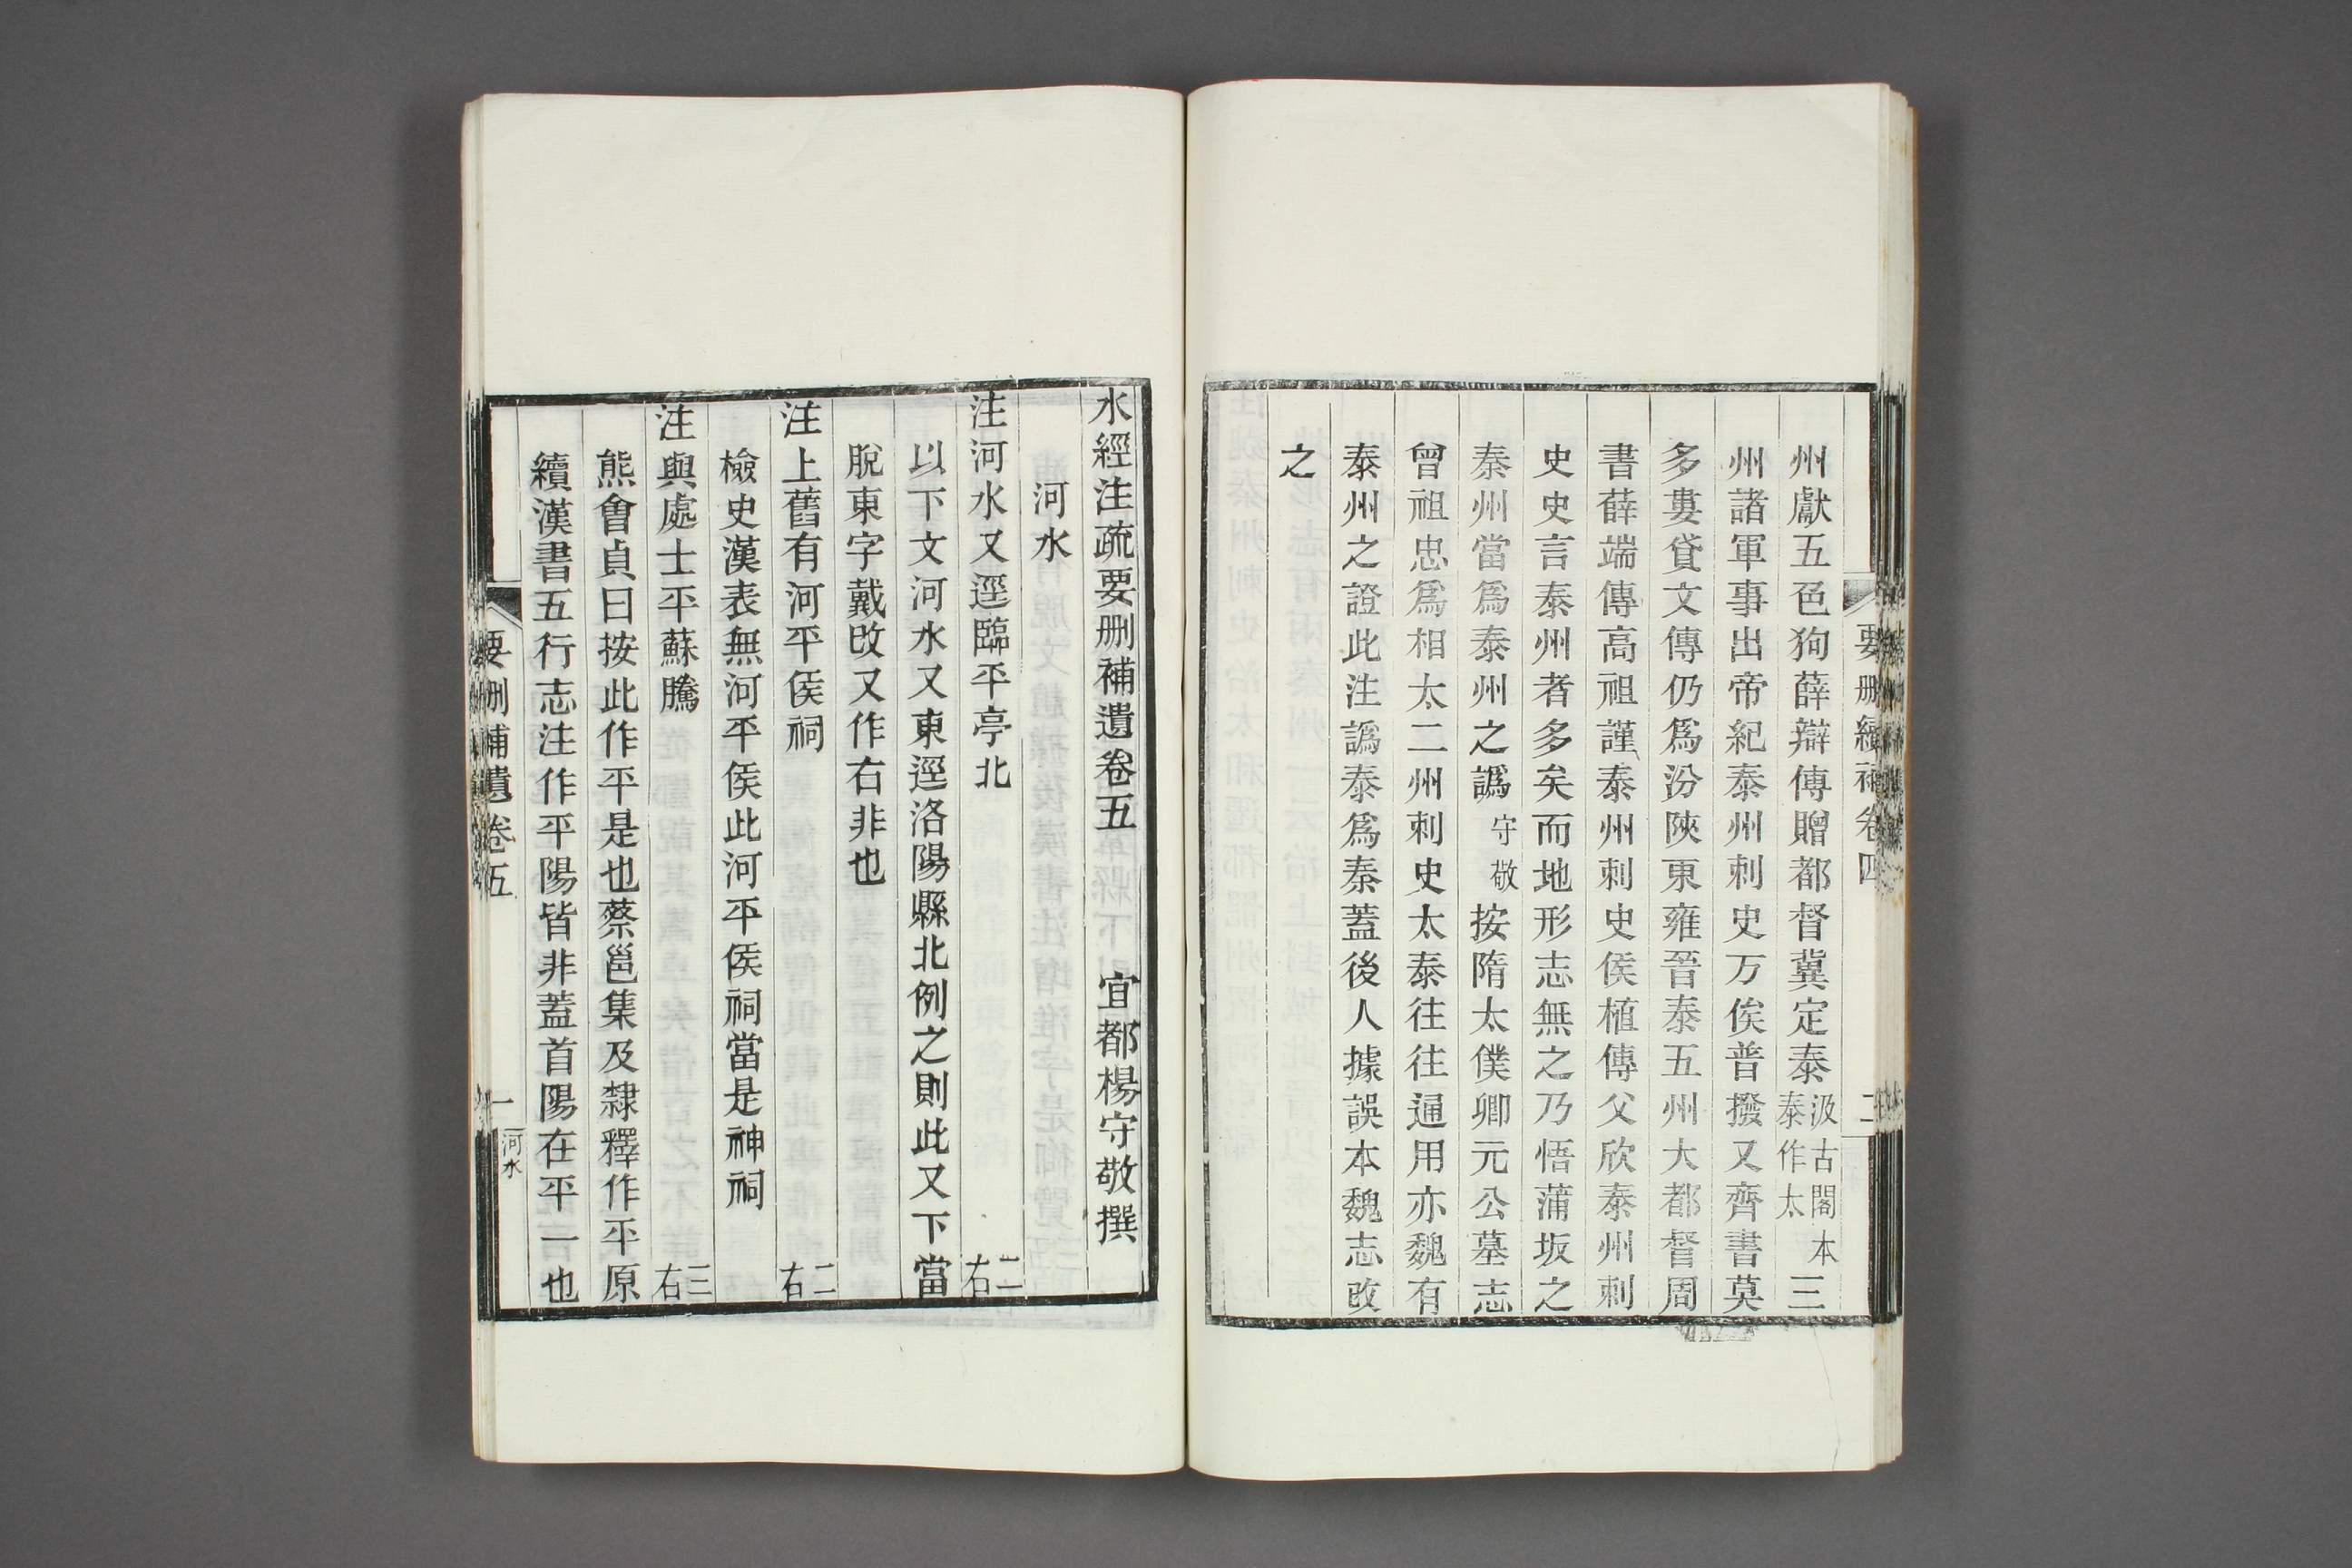 要刪續補卷四
二
州獻五色狗薛辯傳贈都督冀定泰汲古閣本泰作太三
州諸軍事出帝紀泰州刺史万俟普撥又齊書莫
多婁貸文傳仍爲汾陝東雍晉泰五州大都督周
書薛端傳高祖謹泰州刺史侯植傳父欣泰州刺
史史言泰州者多矣而地形志無之乃悟蒲坂之
秦州當爲泰州之譌守敬按隋太僕卿元公墓志
曾祖忠爲相太二州刺史太泰往往通用亦魏有
泰州之證此注譌泰爲秦蓋後人據誤本魏志改
之
水經注疏要刪補遺卷五 宜都楊守敬撰
河水
注河水又逕臨平亭北 二右
以下文河水又東逕洛陽縣北例之則此又下當
脫東字戴改又作右非也
注上舊有河平侯祠 二右
檢史漢表無河平侯此河平侯祠當是神祠
注與處士平蘇騰 三右
熊會貞曰按此作平是也蔡邕集及隸釋作平原
續漢書五行志注作平陽皆非蓋首陽在平一也
要刪補遺卷五
一
河水